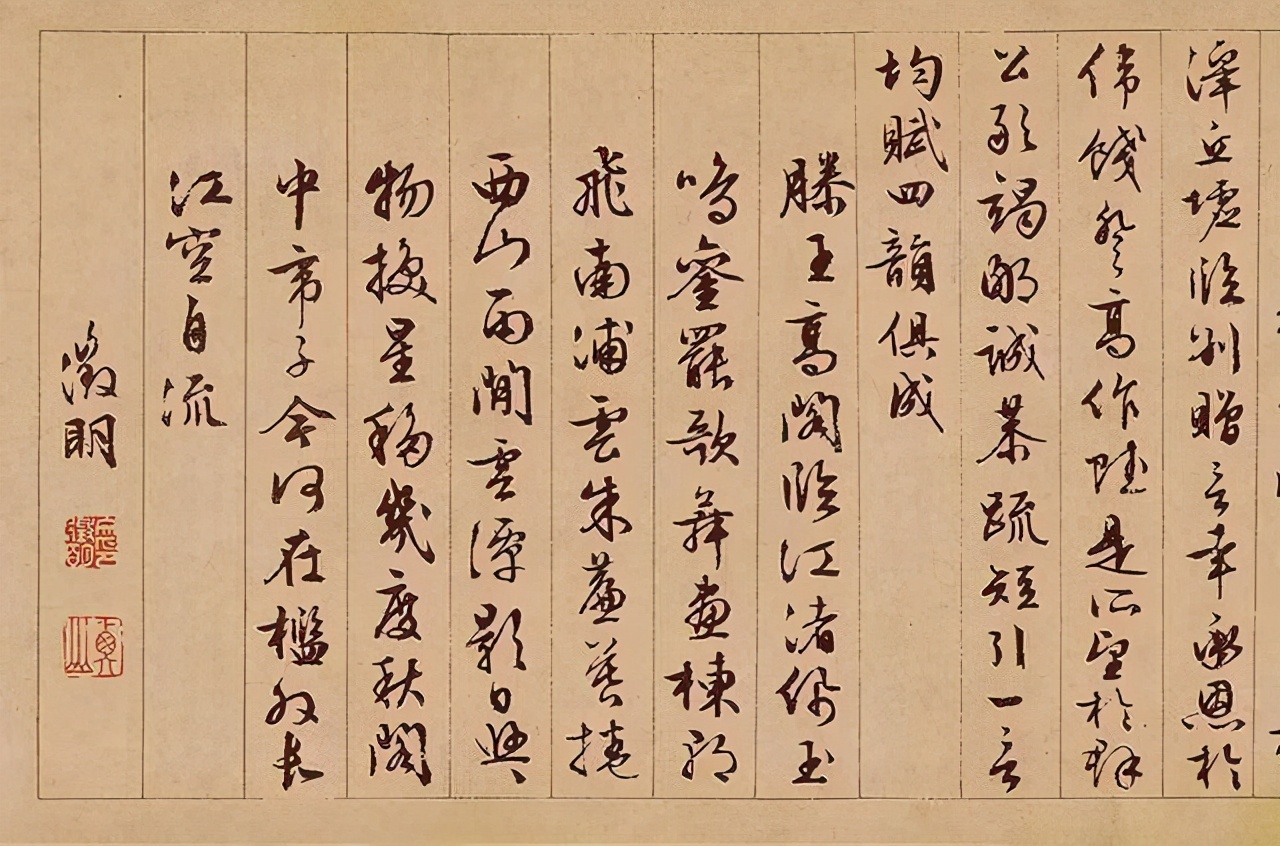 澤丘墟臨別贈言幸承恩於
偉餞登高作賦是所望於群
公敢竭鄙誠恭疏短引一言
均賦四韻俱成
滕王高閣臨江渚佩玉
鳴鑾罷歌舞畫棟朝
飛南浦雲朱簾暮捲
西山雨閒雲潭影日悠々
物換星移幾度秋閣
中帝子今何在檻外長
江空自流
徵明